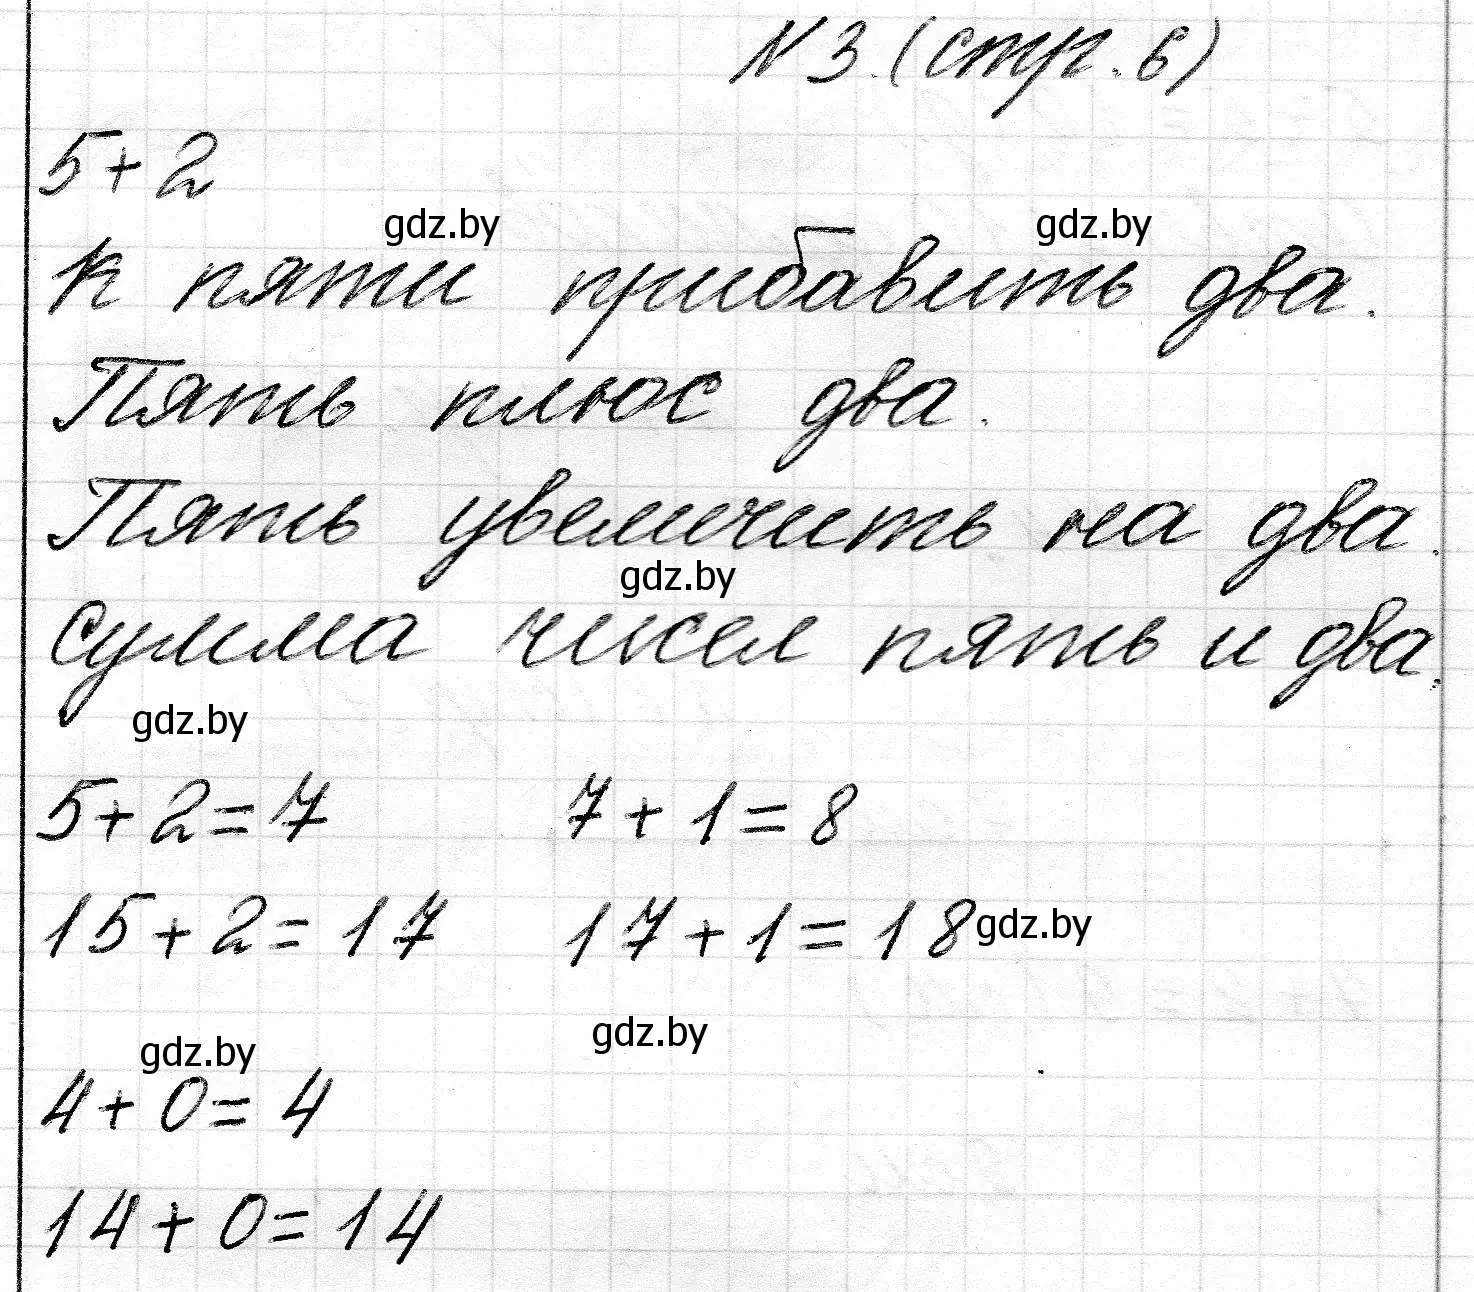 N 3. (стр. 6)
5+2
gdz.by gdz.by
К пяти прибавить два.
Пять плюс два.
Пять увеличить на два.
gdz.by
Сумма чисел пять и два.
gdz.by
5+2=7 7+1=8
15+2=17 17+1=18 gdz.by
gdz.by gdz.by
4+0=4
14+0=14